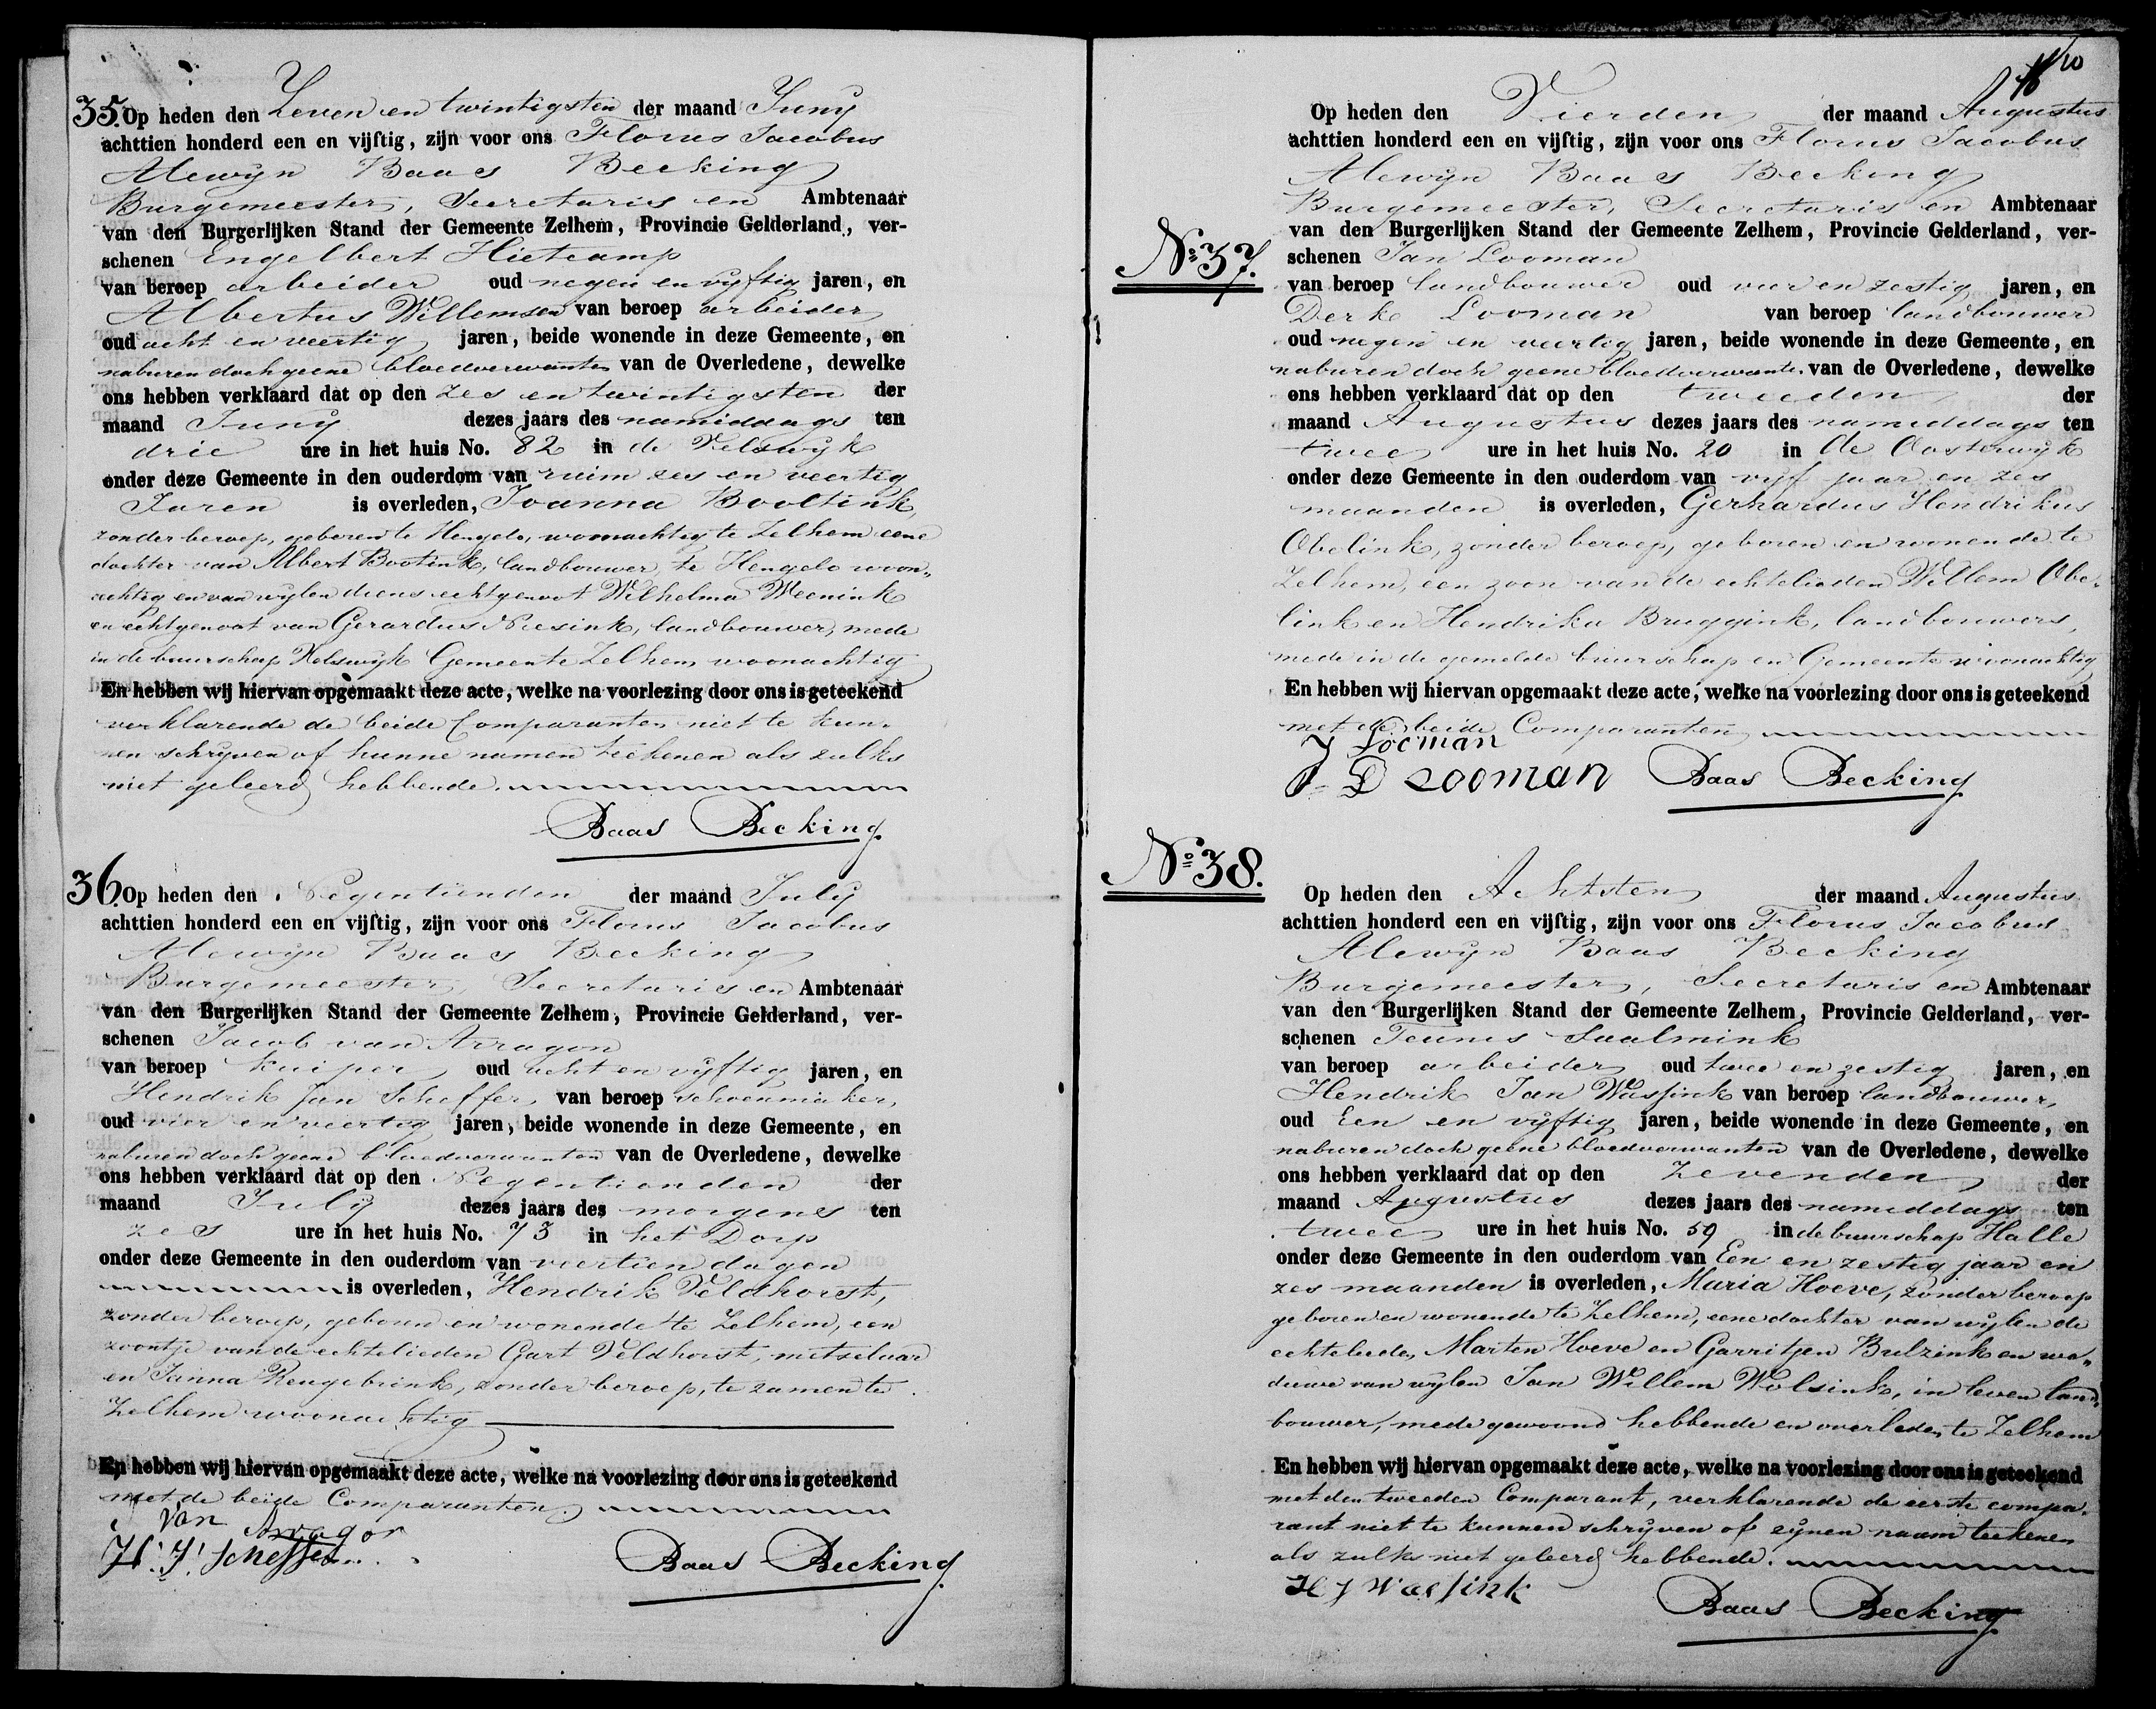 35. Op heden den Zeven en twintigsten der maand Juny
achttien honderd een en vijftig, zijn voor ons Florus Jacobus
Alewijn Baas Becking
Burgemeester, Secretaris en Ambtenaar
van den Burgerlijken Stand der Gemeente Zelhem, Provincie Gelderland, ver-
schenen Engelbert Hietcamp
van beroep arbeider oud negen en vyftig jaren, en
Albertus Willemsen van beroep arbeider
oud acht en veertig jaren, beide wonende in deze Gemeente, en
naburen doch geene bloedverwanten van de Overledene, dewelke
ons hebben verklaard dat op den zes en twintigsten der
maand Juny dezes jaars des namiddags ten
drie ure in het huis No. 82 in de Velswyk
onder deze Gemeente in den ouderdom van ruim zes en veertig
Jaren is overleden, Joanna Booltink,
zonder beroep, geboren te Hengelo, woonachtig te Zelhem eene
dochter van Albert Bootink, landbouwer, te Hengelo woon„
achtig en van wylen diens echtgenoot Wilhelma Meenink
en echtgenoot van Gerardus Niesink, landbouwer, mede
in de buurschap Velswyk Gemeente Zelhem woonachtig
En hebben wij hiervan opgemaakt deze acte, welke na voorlezing door ons is geteekend
verklarende de beide Comparanten niet te kun-
nen schryven of hunne namen teekenen als zulks
niet geleerd hebbende.
Baas Becking
36. Op heden den Negentienden der maand July
achttien honderd een en vijftig, zijn voor ons Florus Jacobus
Alewyn Baas Becking
Burgemeester, Secretaris en Ambtenaar
van den Burgerlijken Stand der Gemeente Zelhem, Provincie Gelderland, ver-
schenen Jacob van Arragon
van beroep kuiper oud acht en vyftig jaren, en
Hendrik Jan Scheffer van beroep schoenmaker,
oud vier en veertig jaren, beide wonende in deze Gemeente, en
naburen doch geene bloedverwanten van de Overledene, dewelke
ons hebben verklaard dat op den Negentienden der
maand July dezes jaars des morgens ten
zes ure in het huis No. 73 in het Dorp
onder deze Gemeente in den ouderdom van veertien dagen
is overleden, Hendrik Veldhorst,
zonder beroep, geboren en wonende te Zelhem, een
zoontje van de echtelieden Gart Veldhorst, metselaar
en Janna Reugebrink, zonder beroep, te zamen te
Zelhem woonachtig
En hebben wij hiervan opgemaakt deze acte, welke na voorlezing door ons is geteekend
met de beide Comparanten.
J van Arragon
H. J. Scheffer
Baas Becking
10
Op heden den Vierden der maand Augustus
achttien honderd een en vijftig, zijn voor ons Florus Jacobus
Alewyn Baas Becking
Burgemeester, Secretaris en Ambtenaar
van den Burgerlijken Stand der Gemeente Zelhem, Provincie Gelderland, ver-
No 37.
schenen Jan Looman
van beroep landbouwer oud vier en zestig jaren, en
Derk Looman van beroep landbouwer
oud negen en veertig jaren, beide wonende in deze Gemeente, en
naburen doch geene bloedverwanten van de Overledene, dewelke
ons hebben verklaard dat op den tweeden der
maand Augustus dezes jaars des namiddags ten
twee ure in het huis No. 20 in de Oosterwyk
onder deze Gemeente in den ouderdom van vyf jaar en zes
maanden is overleden, Gerhardus Hendrikus
Obelink, zonder beroep, geboren en wonende te
Zelhem, een zoon van de echtelieden Willem Obe-
link en Hendrika Bruggink, landbouwers,
mede in de gemelde buurschap en Gemeente woonachtig
En hebben wij hiervan opgemaakt deze acte, welke na voorlezing door ons is geteekend
met de beide Comparanten
J Looman
D Looman Baas Becking
No 38.
Op heden den Achtsten der maand Augustus
achttien honderd een en vijftig, zijn voor ons Florus Jacobus
Alewyn Baas Becking
Burgemeester, Secretaris en Ambtenaar
van den Burgerlijken Stand der Gemeente Zelhem, Provincie Gelderland, ver-
schenen Teunis Saalmink
van beroep arbeider oud twee en zestig jaren, en
Hendrik Jan Wassink van beroep landbouwer,
oud Een en vyftig jaren, beide wonende in deze Gemeente, en
naburen doch geene bloedverwanten van de Overledene, dewelke
ons hebben verklaard dat op den Zevenden der
maand Augustus dezes jaars des namiddags ten
twee ure in het huis No. 59 in de buurschap Halle
onder deze Gemeente in den ouderdom van Een en zestig jaar en
zes maanden is overleden, Maria Hoeve, zonder beroep
geboren en wonende te Zelhem, eene dochter van wylen de
echtelieden Marten Hoeve en Garritjen Bulzink en we„
duwe van wylen Jan Willem Wolsink, in leven land„
bouwer, mede gewoond hebbende en overleden te Zelhem
En hebben wij hiervan opgemaakt deze acte, welke na voorlezing door ons is geteekend
met den tweeden Comparant, verklarende de eerste compa-
rant niet te kunnen schryven of zynen naam teekenen
als zulks niet geleerd hebbende.
H J Wassink
Baas Becking